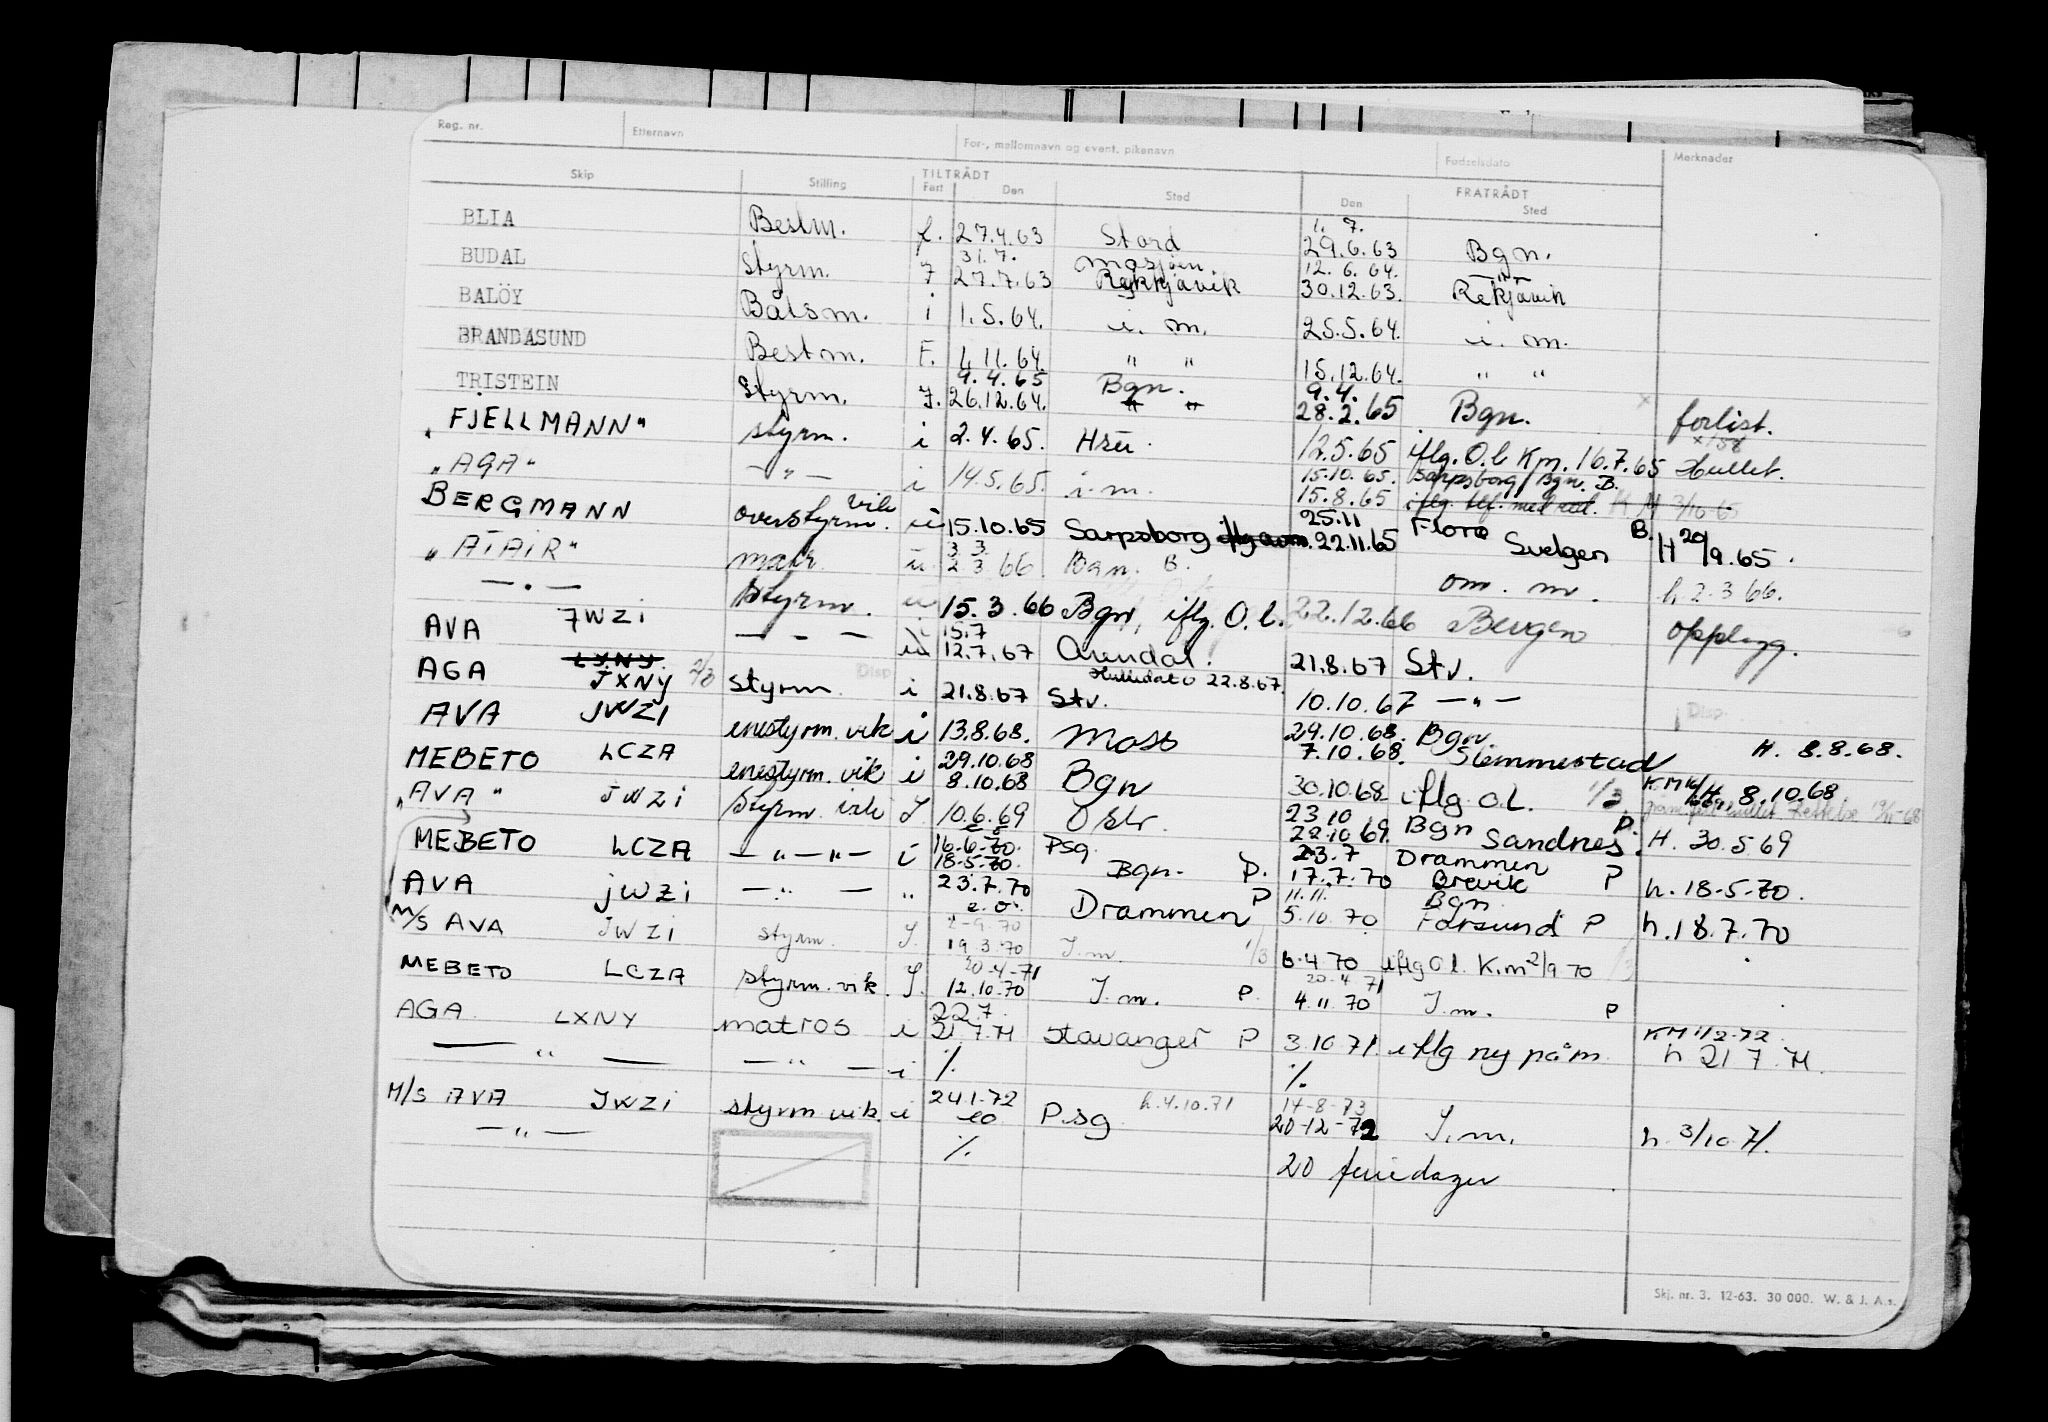 Reg. nr. Etternavn For-, mellomnavn og event. pikenavn Fødselsdato Merknader
Skip Stilling TILTRÅDT Fart Den Sted FRATRÅDT Den Sted
BLIA Bestm. f. 27.4.63 Stord 1. 7. 29.6.63 Bgn.
BUDAL Styrm. 7 31.7. 27.7.63 Mosjøen. Reykkjavik 12.6.64. 30.12.63. Rekjavik
BALÖY Båtsm. i 1.5.64. i. m. 25.5.64. i. m.
BRANDASUND Bestm. F. 4.11.64. " " 15.12.64. " "
TRISTEIN Styrm. 7. 9.4.65 26.12.64. Bgn. " " 9.4. 28.2.65 Bgn. x forlist.
"FJELLMANN" styrm. i 2.4.65. 12.5.65 iflg. O.l Km. 16.7.65 Hullet.
"AGA" — " — i 14.5.65. i.m. 15.10.65. 15.8.65 Sarpsborg/Bgn. B. iflg. tlf. med red. KM 3/10 65
BERGMANN overstyrm. vik i 15.10.65 Sarpsborg 25.11 22.11.65 Florø B. Svelgen H 20/9.65.
"ATAIR" matr 3 3. 2 3 66. Bgn. B. om. m. h. 2.3 66.
— " — Styrm. 15.3.66 Bgn, iflg. O.l. 22.12.66 Bergen opplegg.
AVA JWZI — " — 15.7 12.7.67 Arendal. 21.8.67 Stv.
AGA LXNY. JXNY 2/3 styrm. i 21.8.67 Stv. Hulledato 22.8.67. 10.10.67 — " — Disp.
AVA JWZI enestyrm. vik i 13.8.68. Moss 29.10.68. 7.10.68. Bgn Slemmestad H. 8.8.68.
MEBETO LCZA enestyrm. vik i 29.10.68 8.10.68 Bgn 30.10.68 iflg. O.L. 1/3. H. 8.10.68
"AVA" JWZI Styrm. vik J. 10.6.69 23.10 22.10.69. Bgn P. Sandnes. H. 30.5.69
MEBETO LCZA — " — " — i 16-6-70. 18-5-70. Psg. Bgn. P. 23.7 17.7.70 Drammen Brevik P h. 18-5-70.
AVA JWZI — " — " 23.7.70 e.o. Drammen P 11.11. 5.10.70 Bgn Farsund P h. 18.7.70
M/S AVA JWZI styrm. J. 2-9.70 19.3.70 I.m. 1/3 6.4 70 iflg O l. K.m 2/9 70
MEBETO LCZA styrm. vik. J. 20-4-71 12.10.70 I.m. P. 20.4 71 4.11.70 I.m. P
AGA LXNY matros i 22.7. 21.7.71 Stavanger P 3.10 71. iflg ny påm. KM 1/2-72 h 21 7. 71.
— " — — " — i % %
M/S AVA JWZI styrm vik. i 24.1-72 eo P.sg h. 4.10.71 14-8-73 20-12-72 I.m. h. 3/10 71.
— " — % 20 feriedager
Skj. nr. 3. 12-63. 30 000. W. & J. A.s.